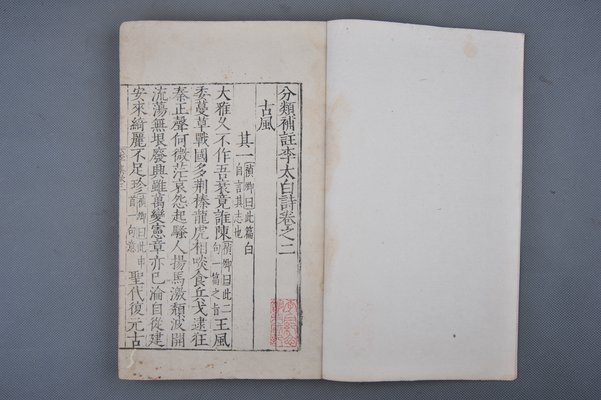 分類補註李太白詩卷之二
古風
其一禎卿曰此篇白自言其志也
大雅久不作吾衰竟誰陳禎卿曰此二句一篇之旨王風
委蔓草戰國多荆榛龍虎相啖食兵戈逮狂
秦正聲何微茫哀怨起騷人揚馬激頽波開
流蕩無垠廢興雖萬變憲章亦已淪自從建
安來綺麗不足珍禎卿曰此申首一句意聖代復元古